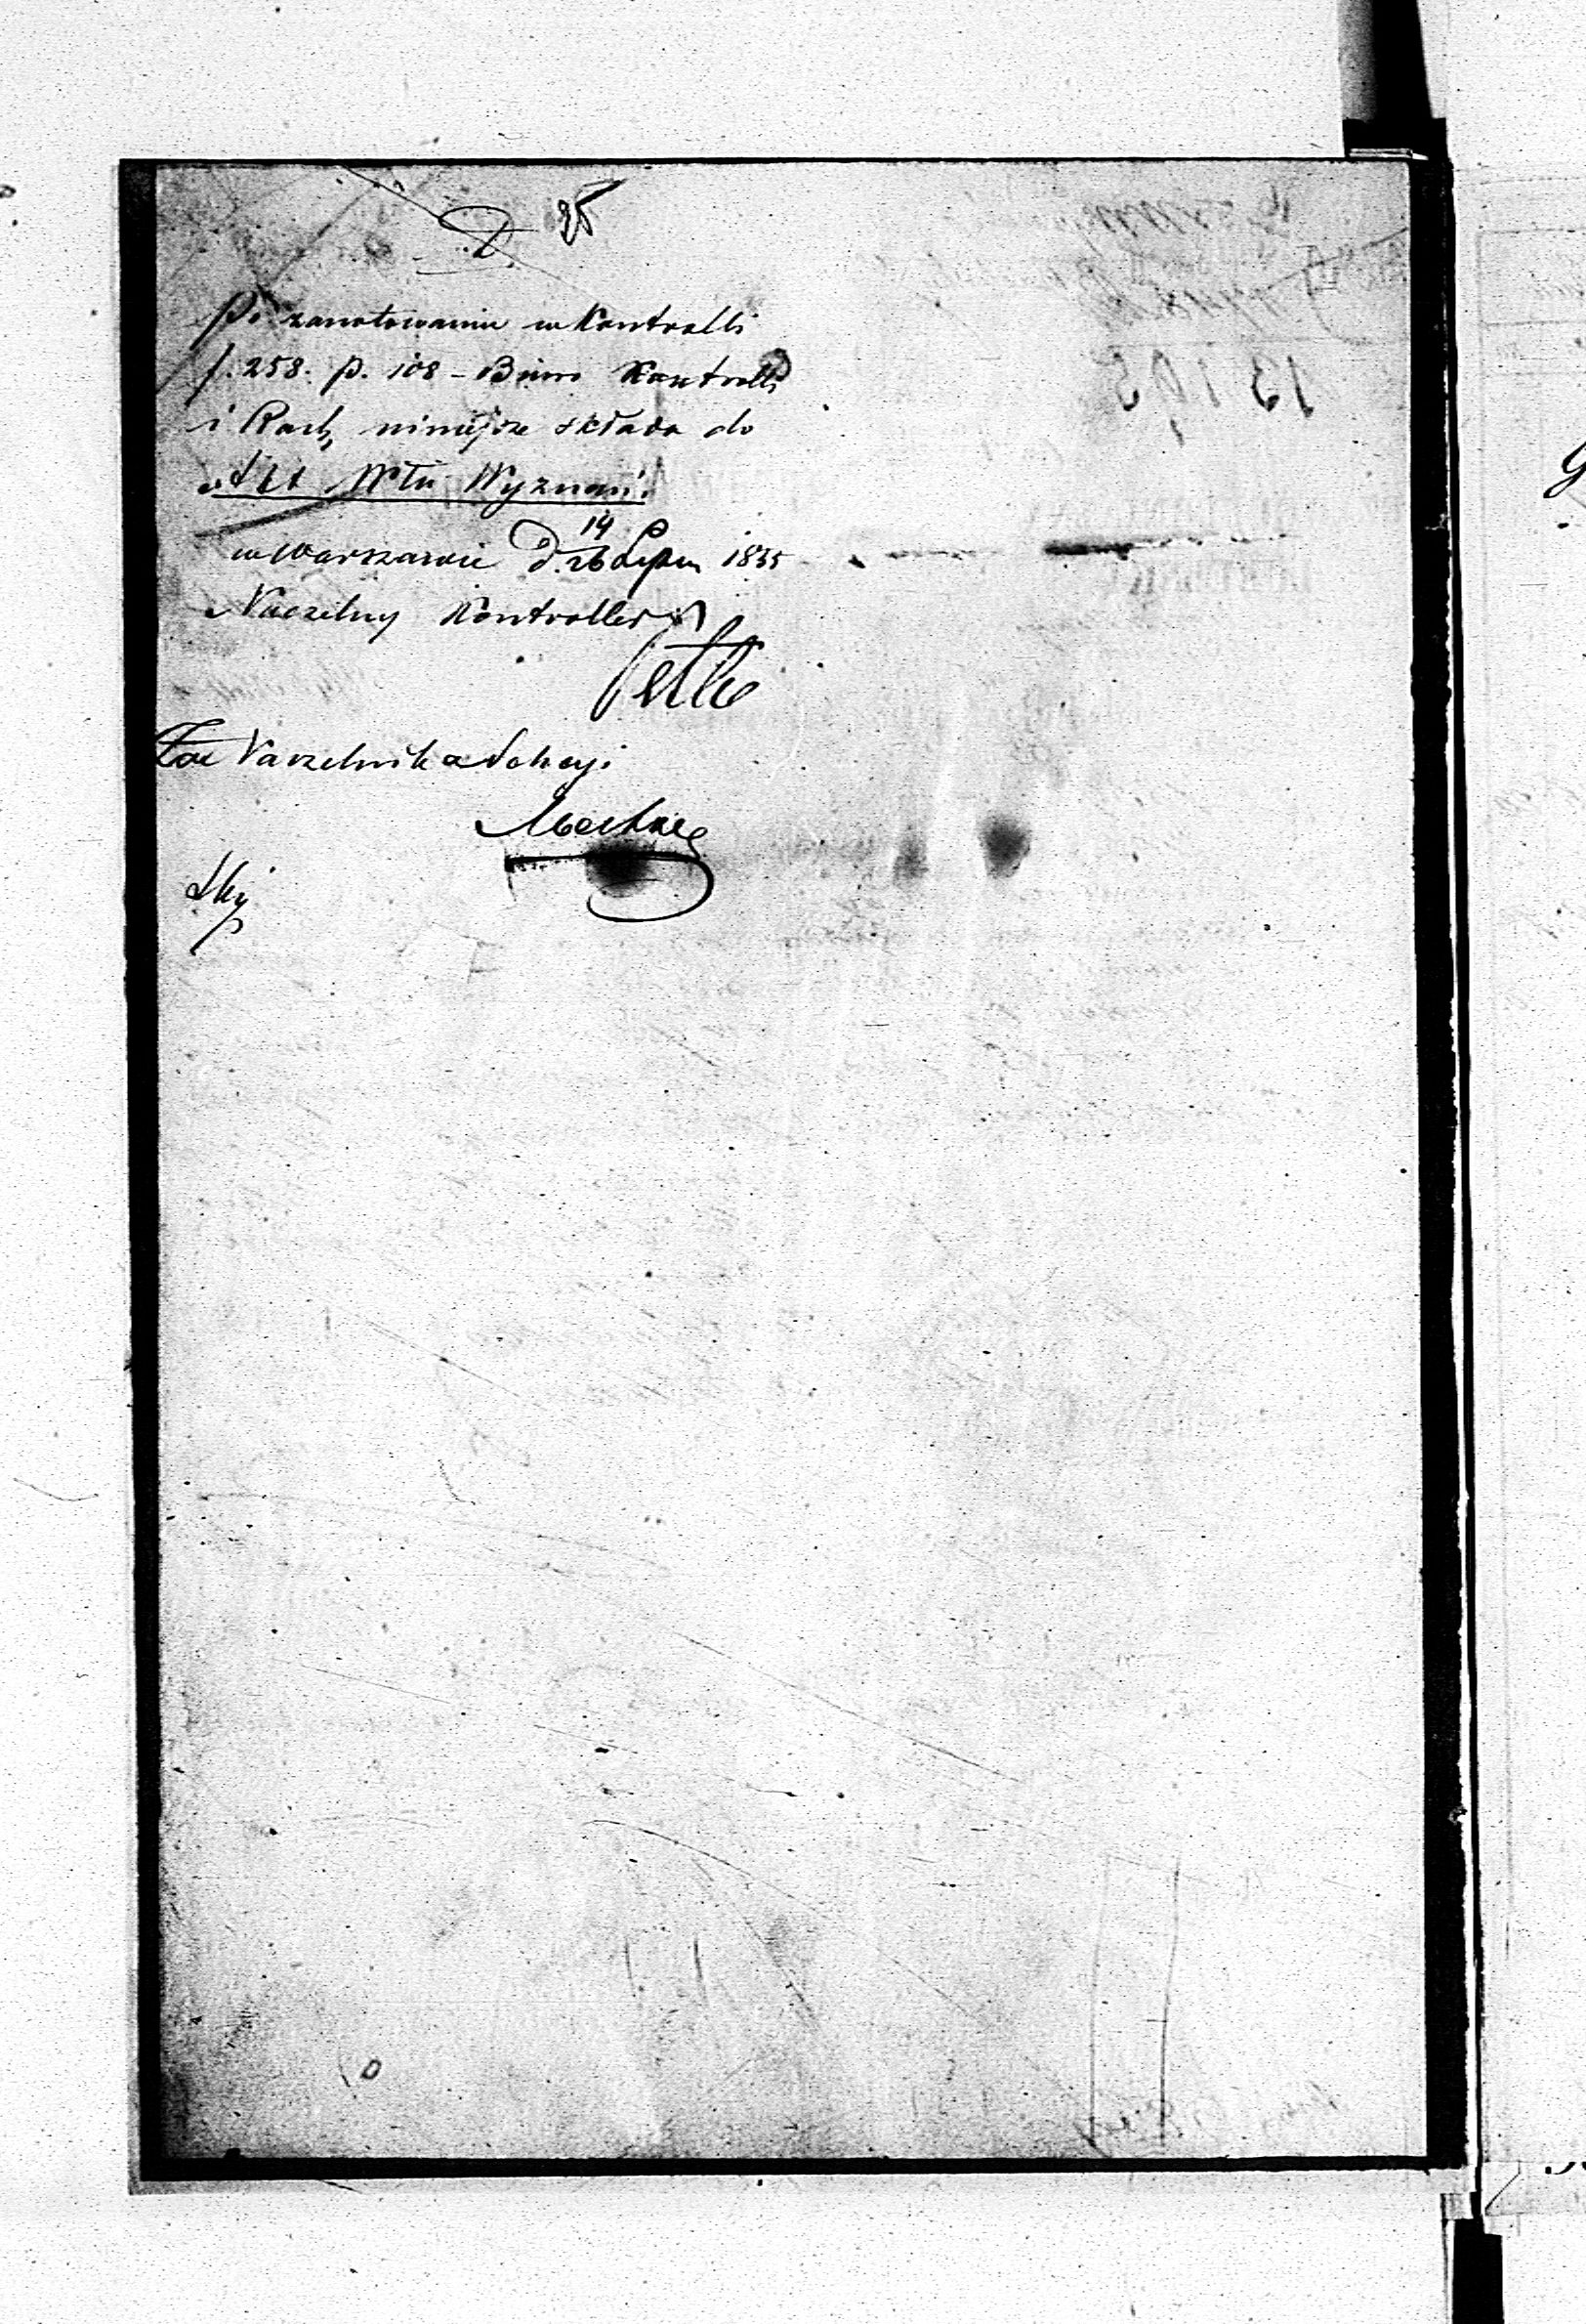 25
Po zanotowaniu w Kontrolli
f. 258. p. 108 - Biuro Kontrolli
i Rach, niniejsze składa do
Akt Włu Wyznań.
w Warszawie D. 14/26 Lipca 1835
Naczelny Kontroller
Naczelnik Sekcyi